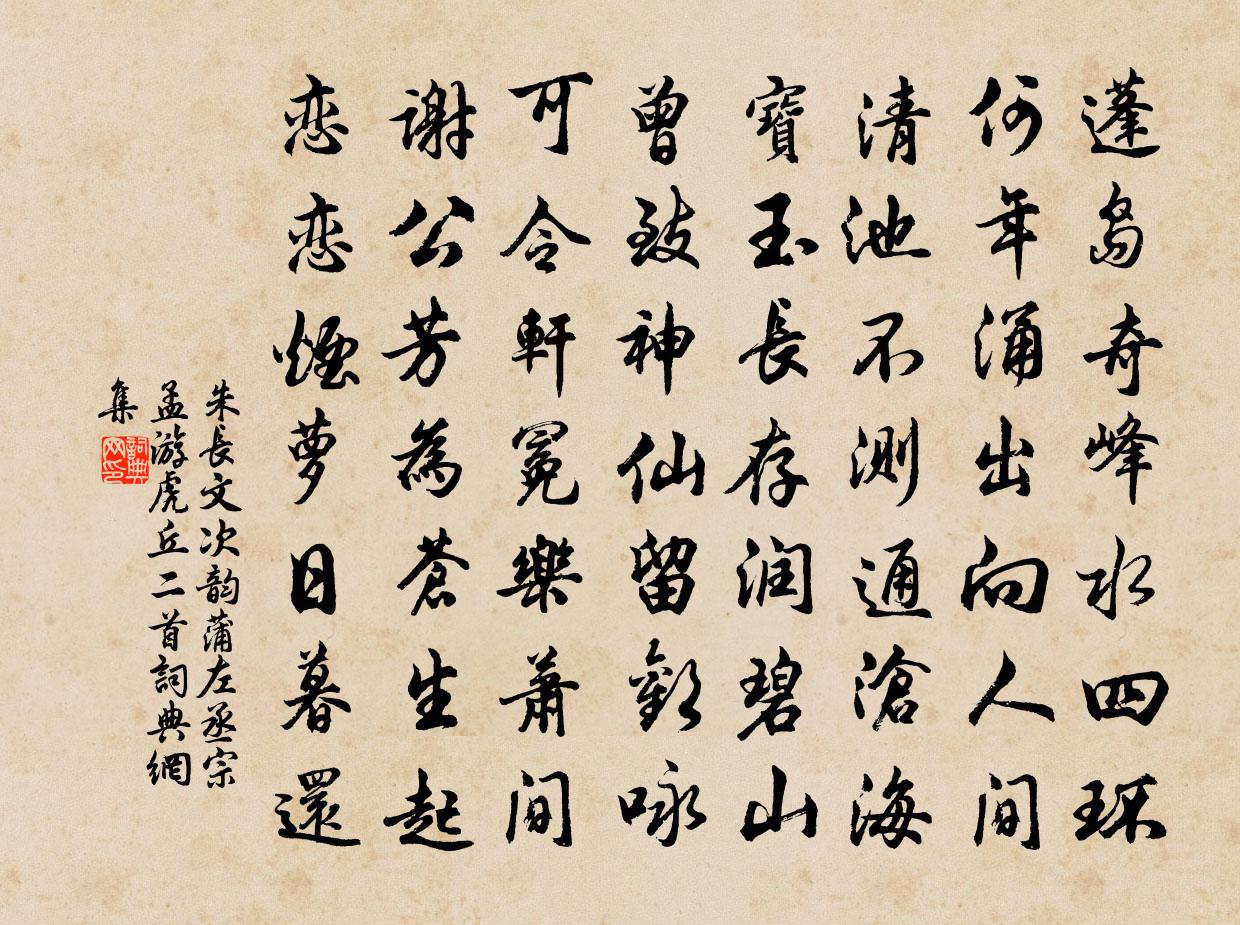 蓬島奇峰水四環
何年涌出向人間
清池不測通滄海
寶玉長存潤碧山
曾致神仙留觀咏
可令軒冕樂蕭間
謝公芳為蒼生起
戀戀煙夢日暮還
朱長文次韵蒲左丞宗
孟游虎丘二首詞典網
集
詞典網印